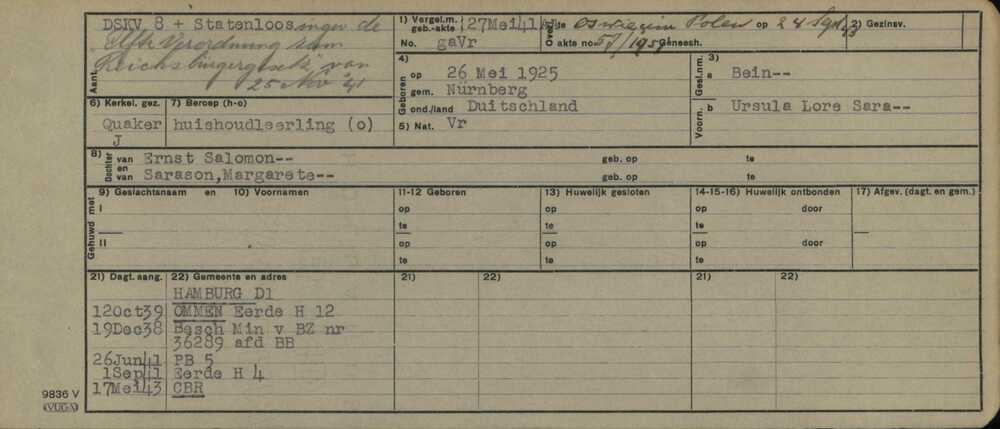 DSKV 8 + Statenloos ingev de
elfte Verordnung zum
Reichsbürgergesetz van
25 Nov '41
Aant.
1) Vergel.m. geb.-akte 27Mei41
No. gaVr
Overl. te Oswiecim Polen op 28 Sept 43
akte no. 57/1951 Geneesh.
2) Gezinsv.
4) Geboren
op 26 Mei 1925
gem. Nürnberg
ond./land Duitschland
5) Nat. Vr
3) Gesl.nm.
a Bein--
Voorn. b Ursula Lore Sara--
6) Kerkel. gez. 7) Beroep (h-o)
Quaker huishoudleerling (o)
J
8) Dochter van Ernst Salomon-- geb. op te
en van Sarason,Margarete-- geb. op te
9) Geslachtsnaam en 10) Voornamen 11-12 Geboren 13) Huwelijk gesloten 14-15-16) Huwelijk ontbonden 17) Afgev. (dagt. en gem.)
Gehuwd met
I op op op door
te te te
II op op op door
te te te
21) Dagt. aang. 22) Gemeente en adres 21) 22) 21) 22)
HAMBURG D1
12Oct39 OMMEN Eerde H 12
19Dec38 Besch Min v BZ nr
36289 afd BB
26Jun41 PB 5
1Sep41 Eerde H 4
17Mei43 CBR
9836 V
(VUGA)